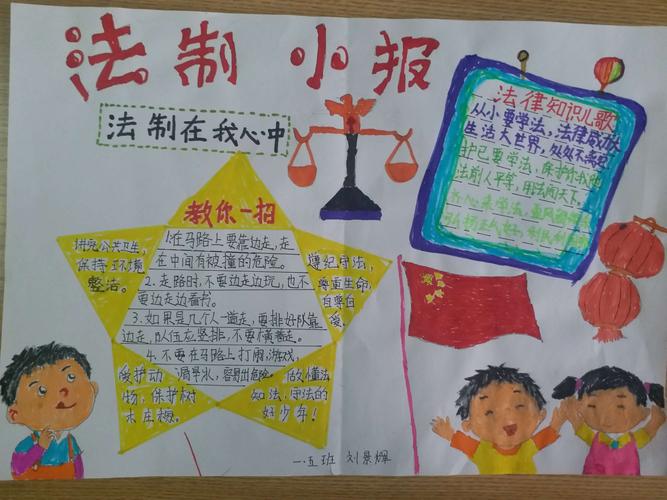 法制 小报
法制在我心中
法律知识儿歌
从小要学法，法律威力大
生活大世界，处处不离它
护己要学法，保护你我他
法前人平等，用法闯天下。
教你一招
1.在马路上要靠边走，走
在中间有被撞的危险。
2.走路时，不要边走边玩，也不
要边走边看书。
3.如果是几个人一道走，要排好队靠
边走，队伍应竖排，不要横着走。
4.不要在马路上打闹、游戏，
溜旱冰，容易出危险。
讲究公共卫生，
保持环境
整洁。
遵纪守法，
尊重生命，
自尊自
爱。
爱护动
物，保护树
木庄稼。
做懂法
知法、守法的
好少年！
一.五班 刘景